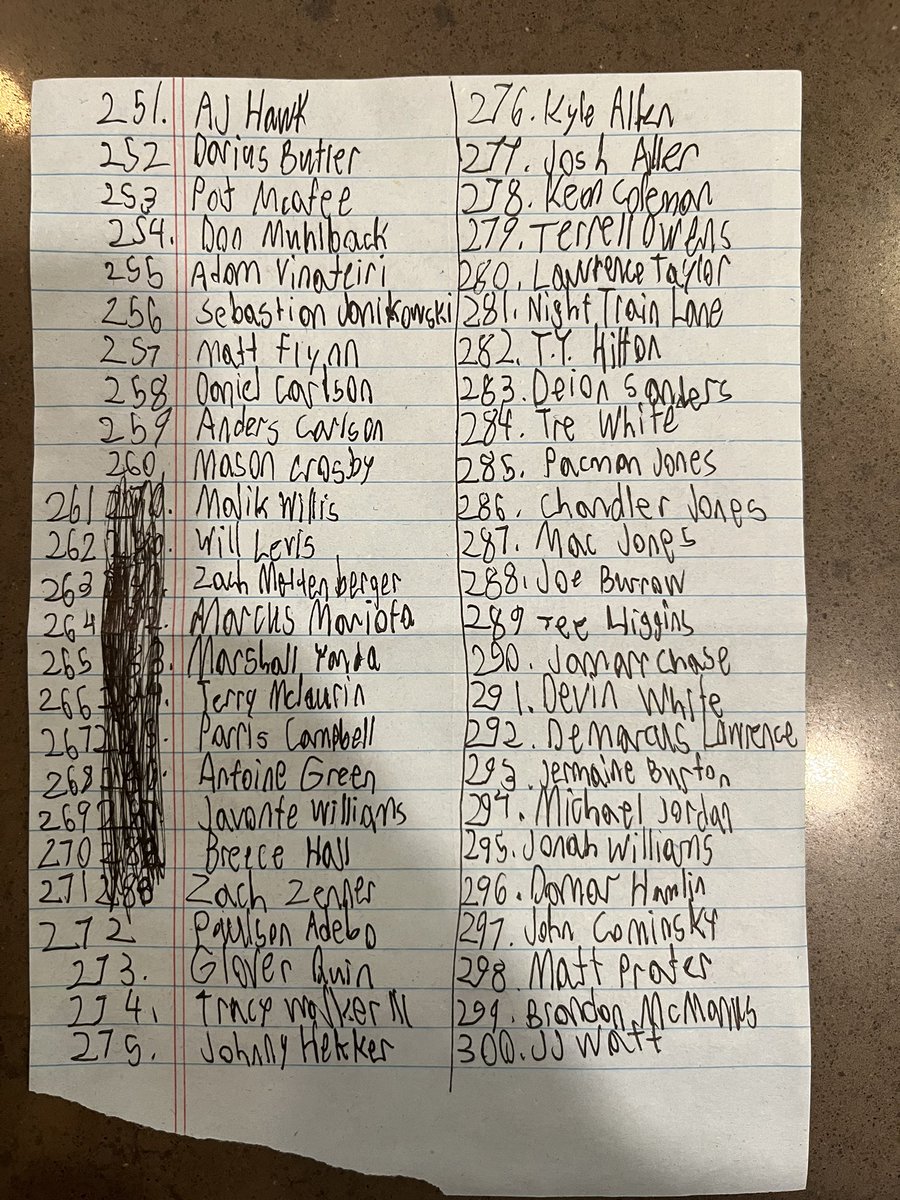 251. AJ Hawk
252 Darius Butler
253 Pat Mcafee
254. Don Muhlback
255 Adam Vinateiri
256 Sebastion Janikowski
257 Matt Flynn
258 Daniel Carlson
259 Anders Carlson
260. Mason Crosby
261 Malik Willis
262 Will Levis
263 Zach Mettenberger
264 Marcus Mariota
265 Marshall Yanda
266 Terry Mclaurin
267 Parris Campbell
268 Antoine Green
269 Javonte Williams
270 Breece Hall
271 Zach Zenner
272 Paulson Adebo
273. Glover Quin
274. Tracy Walker III
275. Johnny Hekker
276. Kyle Allen
277. Josh Allen
278. Keon Coleman
279. Terrell Owens
280. Lawrence Taylor
281. Night Train Lane
282. T.Y. Hilton
283. Deion Sanders
284. Tre White
285. Pacman Jones
286. Chandler Jones
287. Mac Jones
288. Joe Burrow
289 Tee Higgins
290. Jamarr Chase
291. Devin White
292. Demarcus Lawrence
293. Jermaine Burton
294. Michael Jordan
295. Jonah Williams
296. Damar Hamlin
297. John Cominsky
298. Matt Prater
299. Brandon McManus
300. JJ Watt